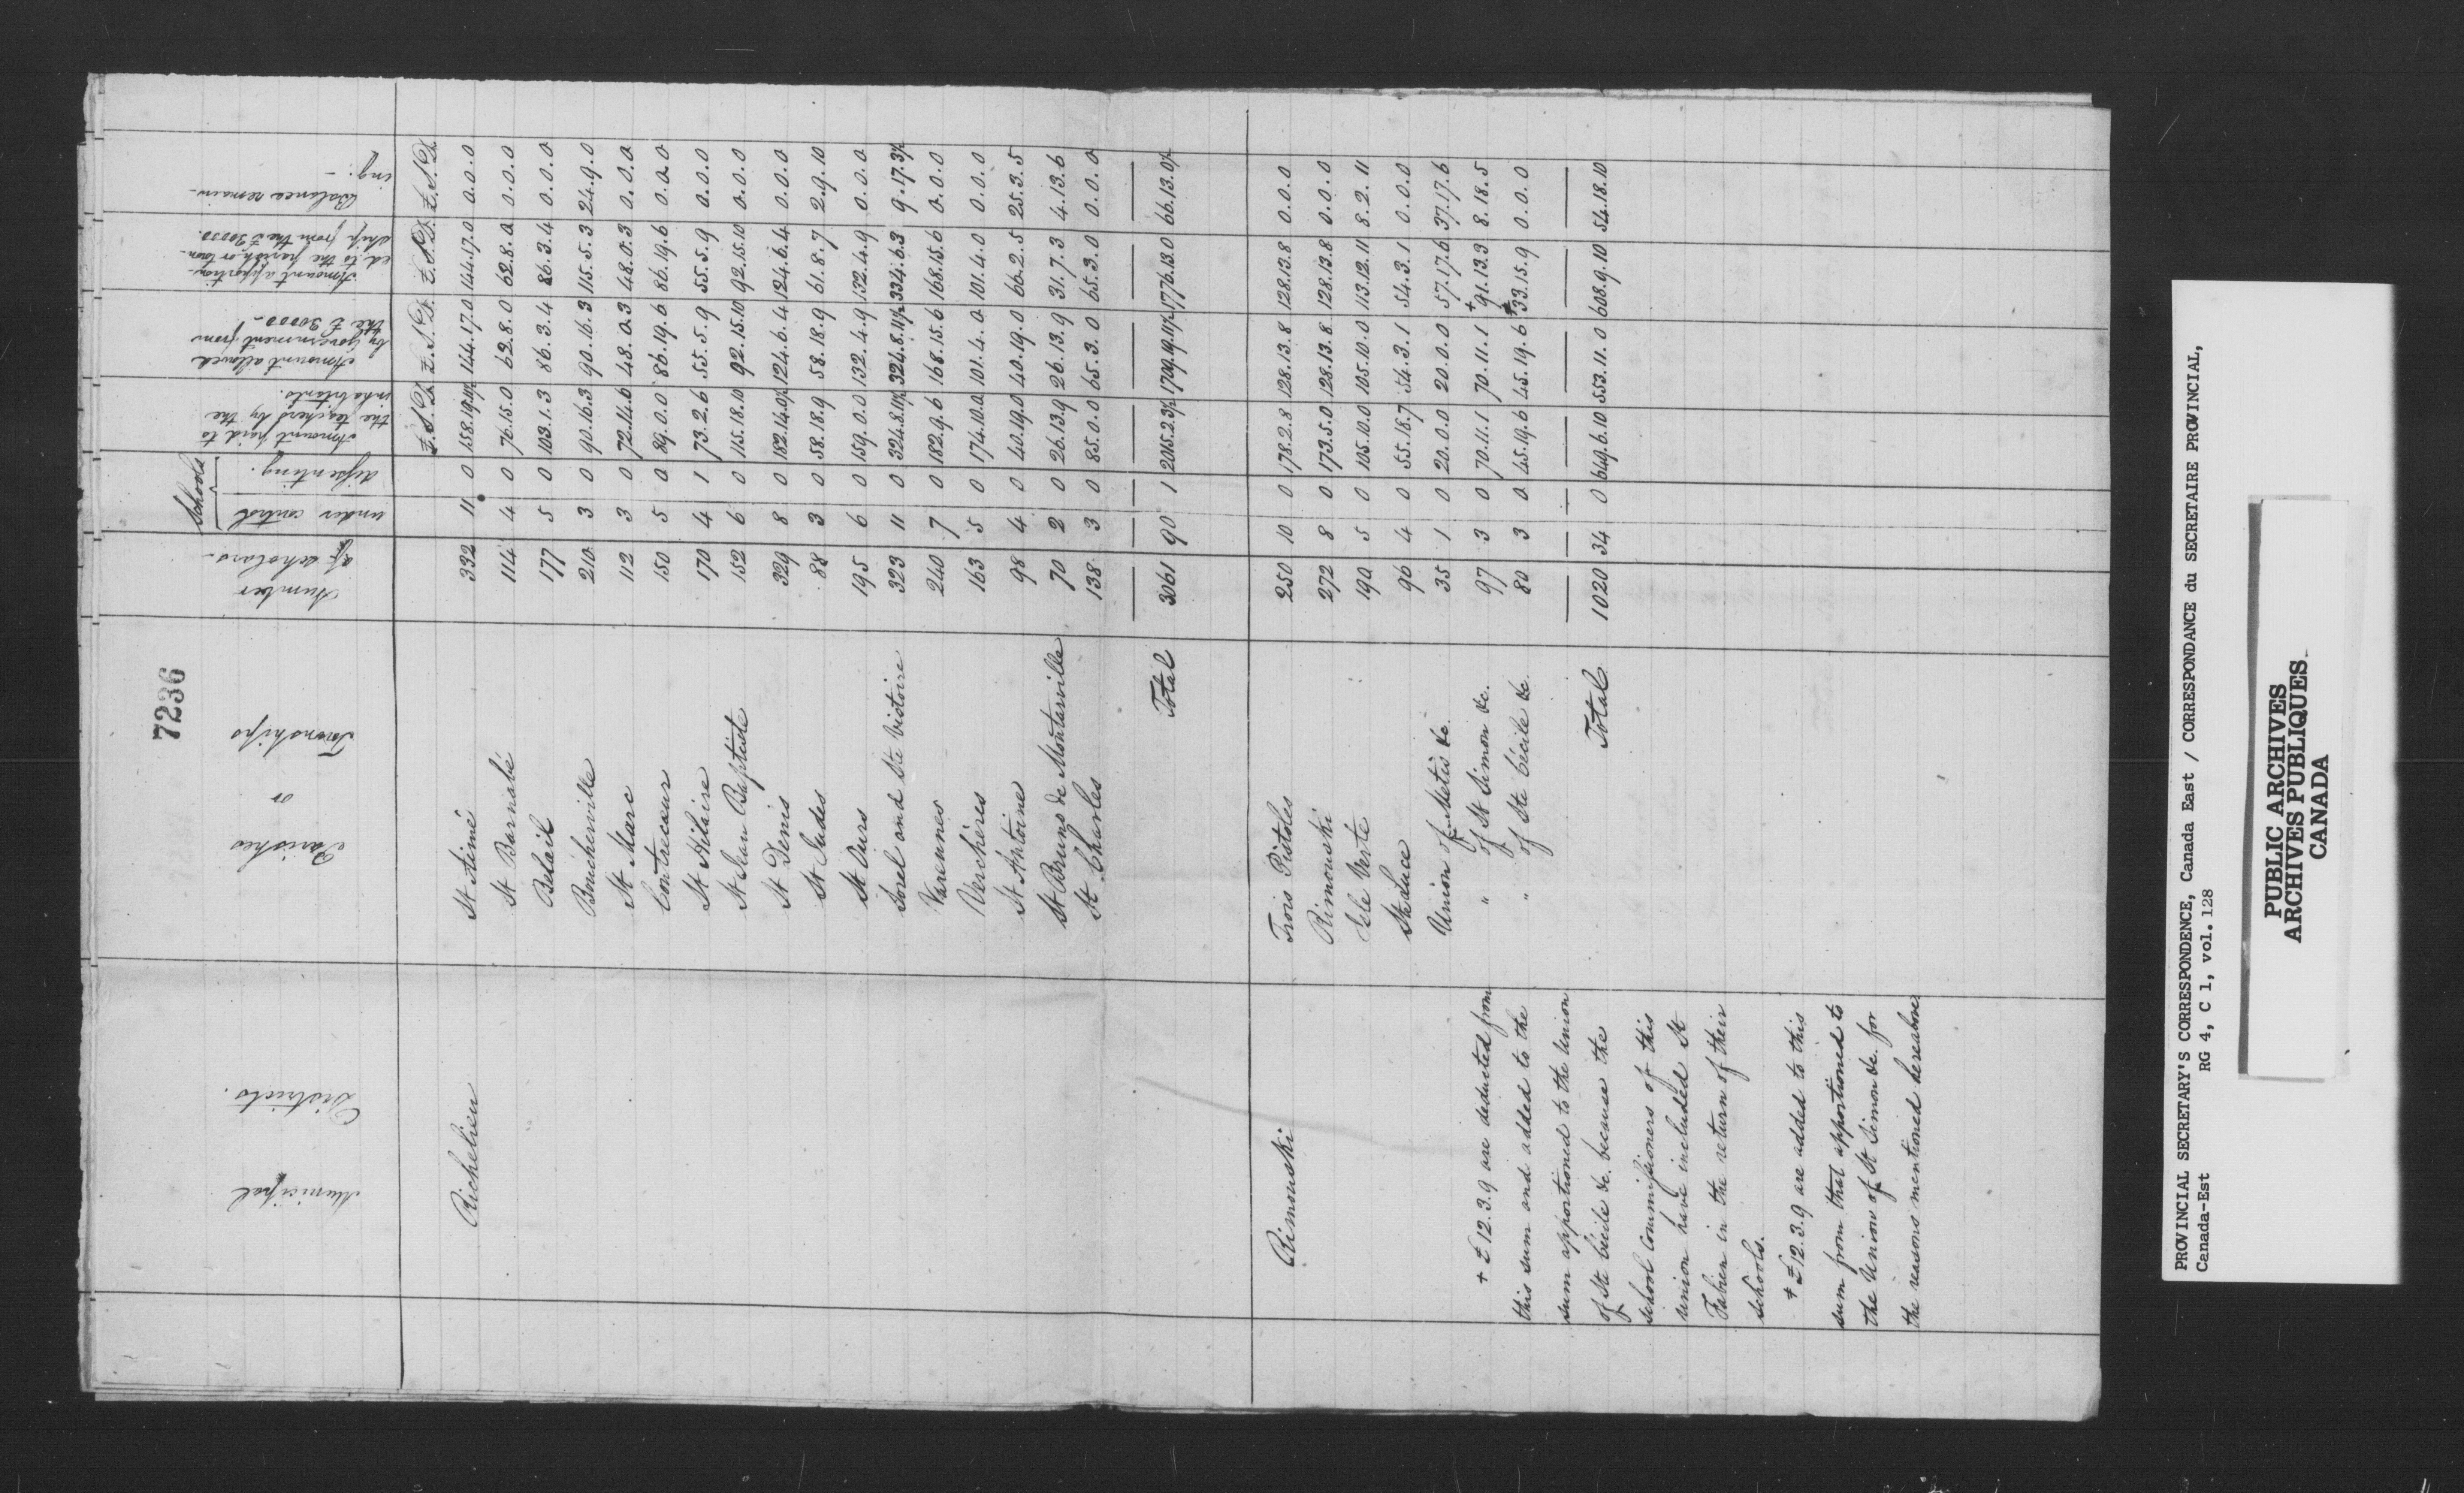 7236
Municipal Districts.
Parishes or Townships
Number of scholars.
Schools
under control
dissenting.
Amount paid to the teachers by the inhabitants.
Amount allowed by Government from the £30000.
Amount apportioned to the parish or township from the £30000.
Balance remaining.
£.S.D. £.S.D. £.S.D. £.S.D.
Richelieu
St Aimé 332 11 0 158.19.11½ 144.17.0 144.17.0 0.0.0
St Barnabé 114 4 0 76.15.0 62.8.0 62.8.0 0.0.0
Belœil 177 5 0 103.1.3 86.3.4 86.3.4 0.0.0
Boucherville 210 3 0 90.16.3 90.16.3 115.5.3 24.9.0
St Marc 112 3 0 72.14.6 48.0.3 48.0.3 0.0.0
Contrecœur 150 5 0 89.0.0 86.19.6 86.19.6 0.0.0
St Hilaire 170 4 1 73.2.6 55.5.9 55.5.9 0.0.0
St Jean Baptiste 152 6 0 115.18.10 92.15.10 92.15.10 0.0.0
St Denis 329 8 0 182.14.0½ 124.6.4 124.6.4 0.0.0
St Judes 88 3 0 58.18.9 58.18.9 61.8.7 2.9.10
St Ours 195 6 0 159.0.0 132.4.9 132.4.9 0.0.0
Sorel and Ste Victoire 323 11 0 324.8.11½ 324.8.11½ 334.6.3 9.17.3½
Varennes 240 7 0 182.9.6 168.15.6 168.15.6 0.0.0
Verchères 163 5 0 174.10.0 101.4.0 101.4.0 0.0.0
St Antoine 98 4 0 40.19.0 40.19.0 66.2.5 25.3.5
St Bruno de Montarville 70 2 0 26.13.9 26.13.9 31.7.3 4.13.6
St Charles 138 3 0 85.0.0 65.3.0 65.3.0 0.0.0
Total 3061 90 1 2015.2.3½ 1709.19.11½ 1776.13.0 66.13.0½
Rimouski
Trois Pistoles 250 10 0 178.2.8 128.13.8 128.13.8 0.0.0
Rimouski 272 8 0 173.5.0 128.13.8 128.13.8 0.0.0
Isle Verte 190 5 0 105.10.0 105.10.0 113.12.11 8.2.11
Ste Luce 96 4 0 55.18.7 54.3.1 54.3.1 0.0.0
Union of Métis &c. 35 1 0 20.0.0 20.0.0 57.17.6 37.17.6
" of St Simon &c. 97 3 0 70.11.1 70.11.1 +91.13.3 8.18.5
" of Ste Cécile &c. 80 3 0 45.19.6 45.19.6 ‡33.15.9 0.0.0
Total 1020 34 0 649.6.10 553.11.0 608.9.10 54.18.10
+ £12.3.9 are deducted from
this sum and added to the
sum apportioned to the Union
of Ste Cécile &c. because the
school Commissioners of this
union have included St
Fabien in the return of their
schools.
‡ £12.3.9 are added to this
sum from that apportioned to
the Union of St Simon &c. for
the reasons mentioned hereabove
PROVINCIAL SECRETARY'S CORRESPONDENCE, Canada East / CORRESPONDANCE du SECRETAIRE PROVINCIAL,
Canada-Est RG 4, C 1, vol. 128
PUBLIC ARCHIVES
ARCHIVES PUBLIQUES
CANADA